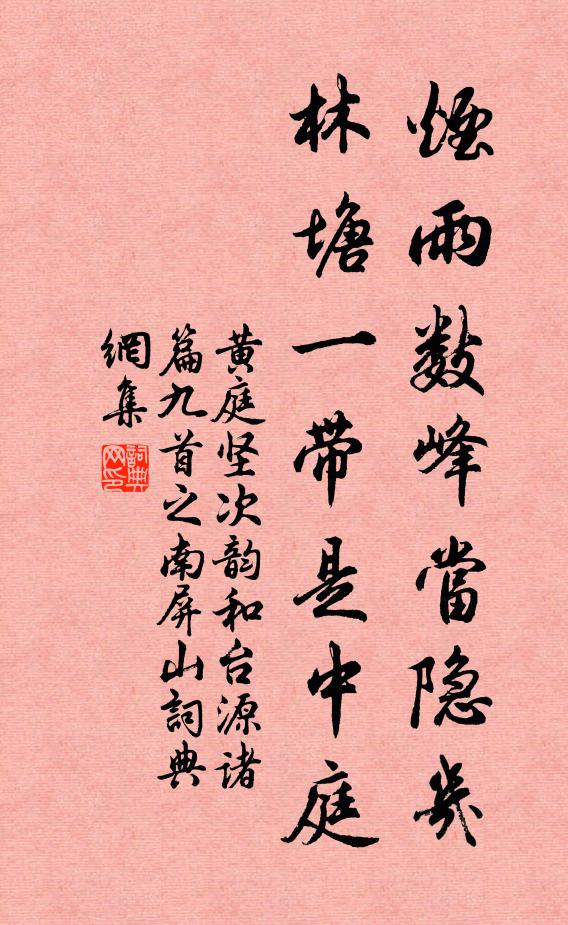 煙雨数峰當隐几
林塘一带是中庭
黄庭坚次韵和台源诸
篇九首之南屏山詞典
網集
詞典
网印